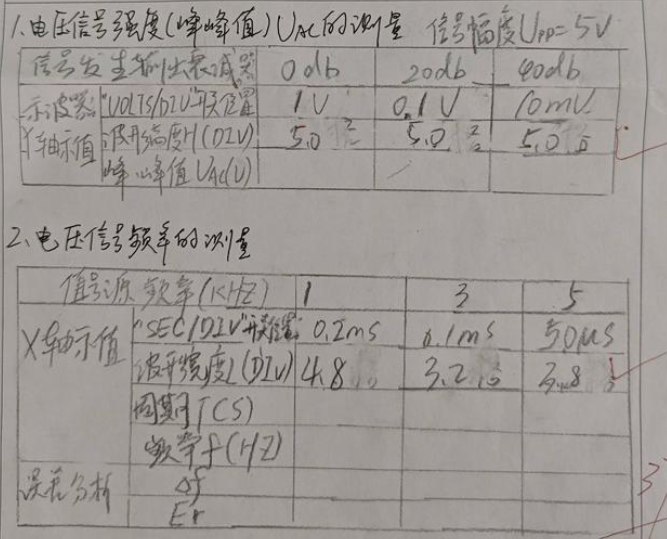 1.电压信号强度(峰峰值)UAC的测量 信号幅度UPP=5V
信号发生输出衰减器 0db 20db 40db
示波器 "VOLTS/DIV"开关位置 1V 0.1V 10mV
Y轴示值 波形幅度H(DIV) 5.0 5.0 5.0
峰峰值UAC(V)
2、电压信号频率的测量
信号源频率(KHZ) 1 3 5
X轴示值 "SEC/DIV"开关位置 0.2ms 0.1ms 50μs
波形宽度L(DIV) 4.8 3.2 3.8
周期T(S)
频率f(HZ)
误差分析 Δf
Er